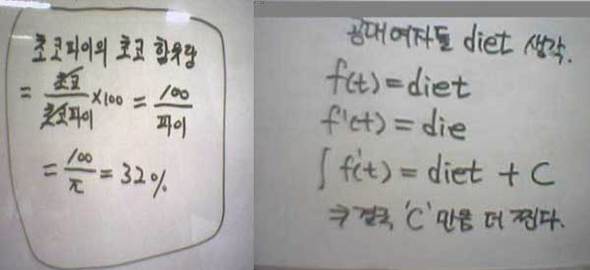 초코파이의 초코 함유량
= 초코/초코파이 ×100 = 100/파이
= 100/π = 32%
공대여자들 diet 생각.
f(t) = diet
f'(t) = die
∫ f'(t) = diet + C
⇒ 결국, 'C' 만큼 더 찐다.